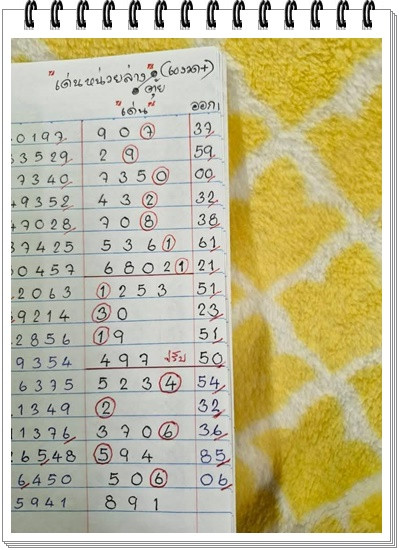 "เด่นหน่วยล่าง" (60งวด+)
อุ้ย
"เด่น" ออก
0197 907 37
33529 29 59
7340 7350 00
9352 432 32
47028 708 38
37425 5361 61
00457 68021 21
2063 1253 51
9214 30 23
2856 19 51
9354 497 ปรับ 50
6375 5234 54
1349 2 32
11376 3706 36
26548 594 85
6450 506 06
5941 891